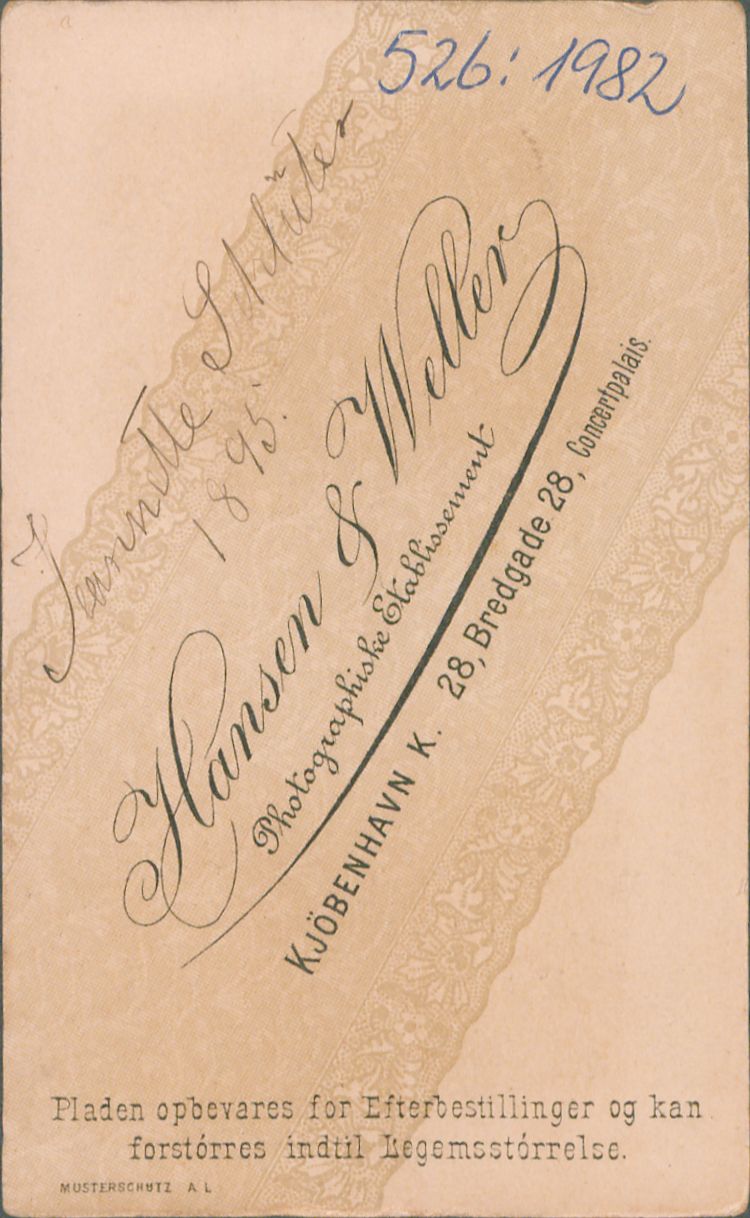 526: 1982
Jannette Schlüter
1895.
Hansen & Weller
Photographiske Etablissement
KJÖBENHAVN K. 28, Bredgade 28, Concertpalais.
Pladen opbevares for Efterbestillinger og kan
forstórres indtil Legemsstórrelse.
MUSTERSCHUTZ A L